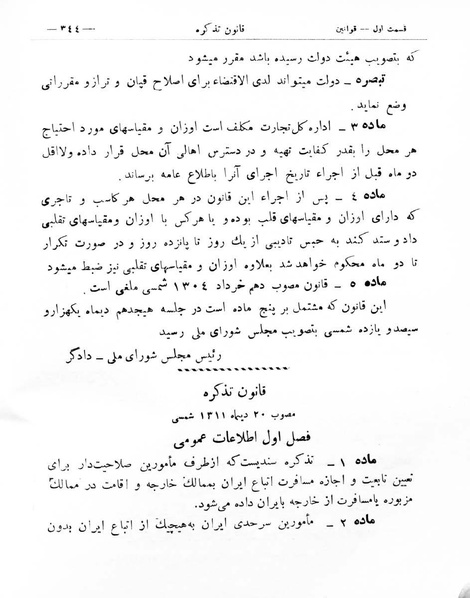 قسمت اول — قوانین
قانون تذکره
— ۳۴۴ —
که بتصویب هیئت دولت رسیده باشد مقرر میشود
تبصره – دولت میتواند لدی الاقتضاء برای اصلاح قپان و ترازو مقرراتی
وضع نماید .
ماده ۳ – اداره کل تجارت مکلف است اوزان و مقیاسهای مورد احتیاج
هر محل را بقدر کفایت تهیه و در دسترس اهالی آن محل قرار داده ولااقل
دو ماه قبل از اجراء تاریخ اجرای آنرا باطلاع عامه برساند .
ماده ٤ – پس از اجراء این قانون در هر محل هر کاسب و تاجری
که دارای اوزان و مقیاسهای قلب بوده و یا هر کس با اوزان و مقیاسهای تقلبی
داد و ستد کند به حبس تادیبی از یك روز تا پانزده روز و در صورت تکرار
تا دو ماه محکوم خواهد شد بعلاوه اوزان و مقیاسهای تقلبی نیز ضبط میشود
ماده ٥ – قانون مصوب دهم خرداد ۱۳۰٤ شمسی ملغی است .
این قانون که مشتمل بر پنج ماده است در جلسه هیجدهم دیماه یکهزارو
سیصدو یازده شمسی بتصویب مجلس شورای ملی رسید
رئیس مجلس شورای ملی – دادگر
قانون تذکره
مصوب ۲۰ دیماه ۱۳۱۱ شمسی
فصل اول اطلاعات عمومی
ماده ۱ – تذکره سندیست که از طرف مأمورین صلاحیت‌دار برای
تعیین تابعیت و اجازه مسافرت اتباع ایران بممالك خارجه و اقامت در ممالك
مزبوره یا مسافرت از خارجه بایران داده می‌شود.
ماده ۲ – مأمورین سرحدی ایران به‌هیچیك از اتباع ایران بدون